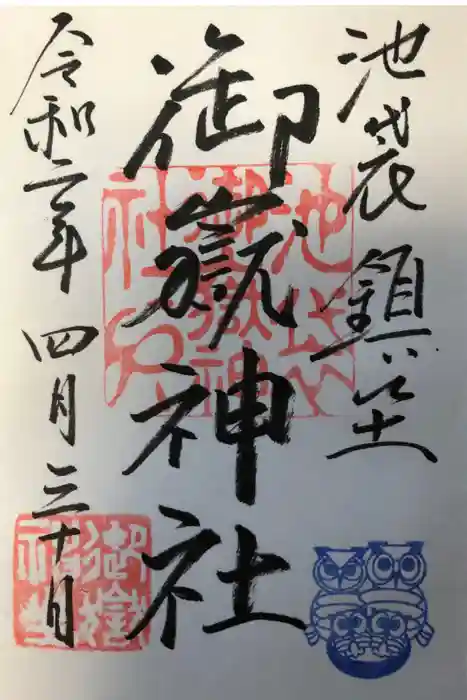 池袋鎮座
御嶽神社
令和二年四月三十日
池袋御嶽神社